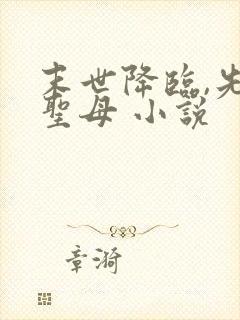 末世降臨,先
聖母 小說
章漪